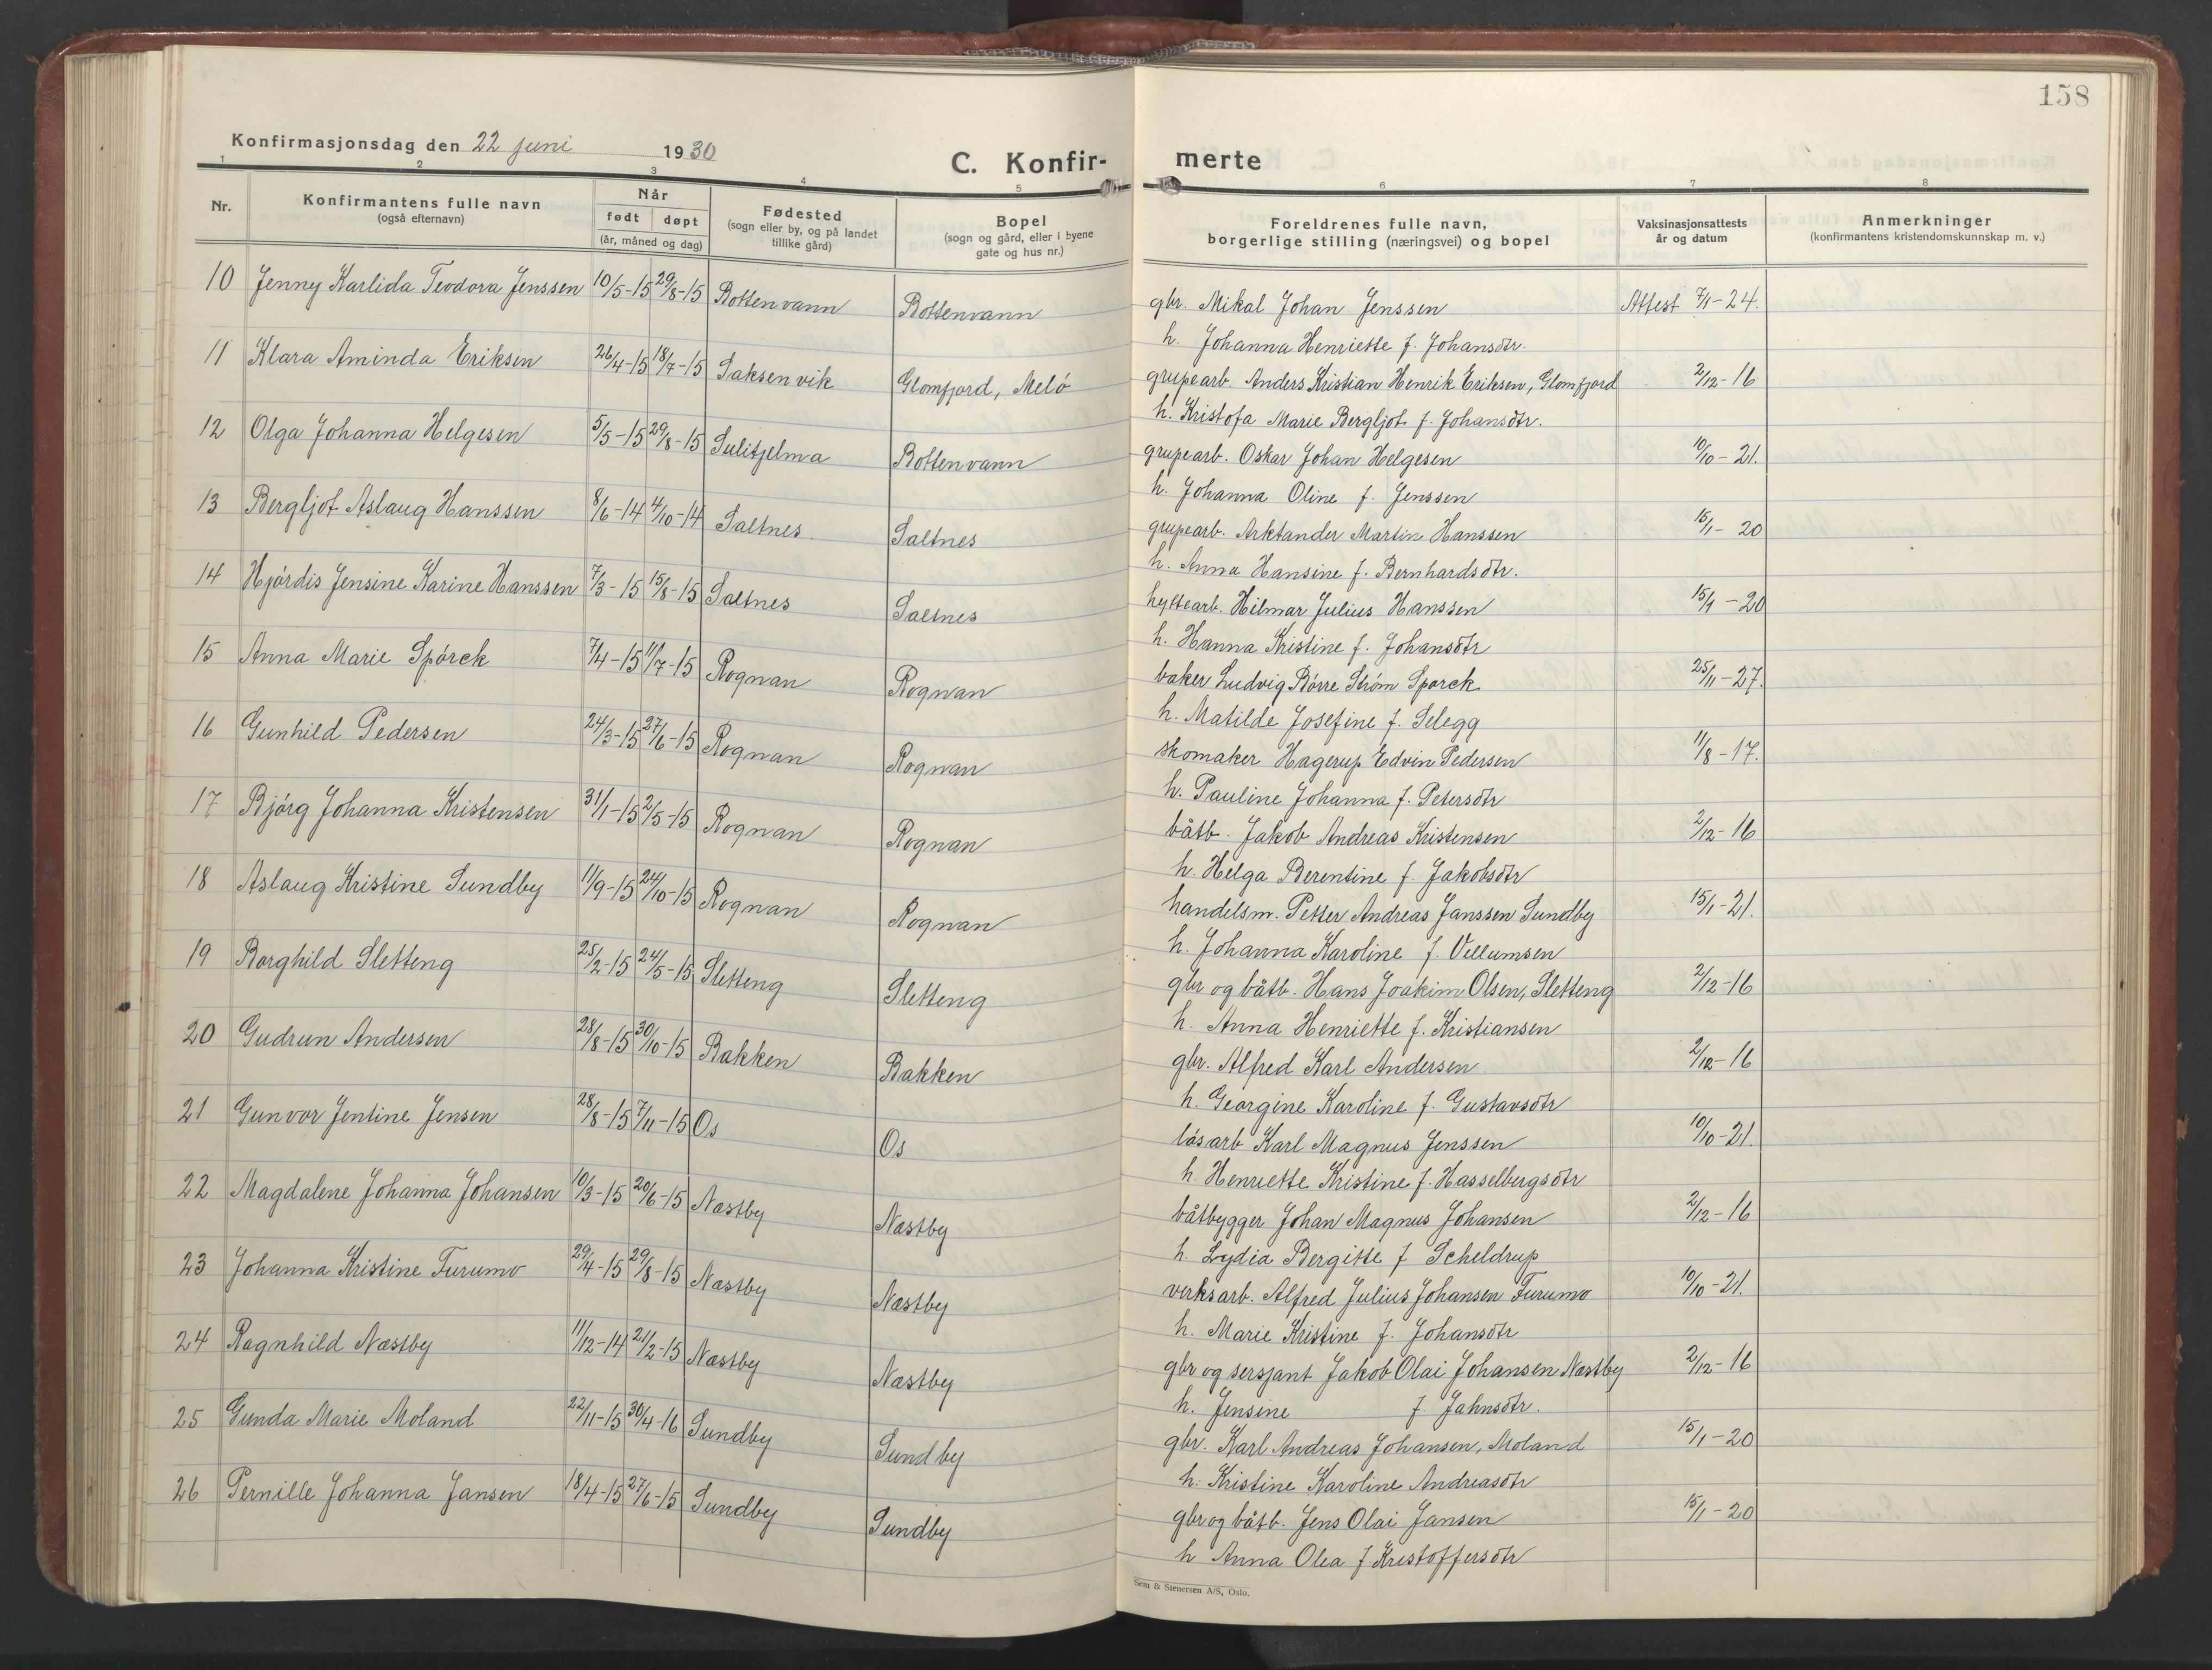 158
Konfirmasjonsdag den 22 juni 1930
C. Konfir- merte
1 2 3 4 5 6 7 8
Nr. Konfirmantens fulle navn (også efternavn) Når født døpt (år, måned og dag) Fødested (sogn eller by, og på landet tillike gård) Bopel (sogn og gård, eller i byene gate og hus nr.) Foreldrenes fulle navn, borgerlige stilling (næringsvei) og bopel Vaksinasjonsattests år og datum Anmerkninger (konfirmantens kristendomskunnskap m. v.)
10 Jenny Karlida Teodora Jenssen 10/5-15 29/8-15 Bottenvann Bottenvann gbr. Mikal Johan Jenssen Attest 7/1-24.
h. Johanna Henriette f. Johansdtr.
11 Klara Aminda Eriksen 26/4-15 18/7-15 Saksenvik Glomfjord, Melö grupearb. Anders Kristian Henrik Eriksen, Glomfjord 2/12-16
h. Kristofa Marie Bergljot f. Johansdtr.
12 Olga Johanna Helgesen 5/5-15 29/8-15 Sulitjelma Bottenvann grupearb. Oskar Johan Helgesen 10/10-21.
h. Johanna Oline f. Jenssen
13 Bergljot Aslaug Hanssen 8/6-14 4/10-14 Saltnes Saltnes grupearb. Arktander Martin Hanssen 15/1-20
h. Anna Hansine f. Bernhardsdtr.
14 Hjördis Jensine Karine Hanssen 7/3-15 15/8-15 Saltnes Saltnes hyttearb. Hilmar Julius Hanssen 15/1-20
h. Hanna Kristine f. Johansdtr
15 Anna Marie Spörck 7/4-15 11/7-15 Rognan Rognan baker Ludvig Börre Ström Sporck 25/11-27.
h. Matilde Josefine f. Selegg
16 Gunhild Pedersen 24/3-15 27/6-15 Rognan Rognan skomaker Hagerup Edvin Pedersen 11/8-17.
h. Pauline Johanna f. Petersdtr
17 Bjórg Johanna Kristensen 31/1-15 2/5-15 Rognan Rognan båtb. Jakob Andreas Kristensen 2/12-16
h. Helga Berentine f. Jakobsdtr
18 Aslaug Kristine Sundby 11/9-15 24/10-15 Rognan Rognan handelsm. Petter Andreas Janssen Sundby 15/1-21.
h. Johanna Karoline f Villumsen
19 Borghild Sletteng 25/2-15 24/5-15 Sletteng Sletteng gbr og båtb. Hans Joakim Olsen, Sletteng 2/12-16
h. Anna Henriette f. Kristiansen
20 Gudrun Andersen 28/8-15 30/10-15 Bakken Bakken gbr. Alfred Karl Andersen 2/12-16
h. Georgine Karoline f. Gustavsdtr
21 Gunvor Jentine Jensen 28/8-15 7/11-15 Os Os lösarb Karl Magnus Jenssen 10/10-21.
h. Henriette Kristine f. Hasselbergsdtr
22 Magdalene Johanna Johansen 10/3-15 20/6-15 Næstby Næstby båtbygger Johan Magnus Johansen 2/12-16
h. Lydia Bergitte f Scheldrup
23 Johanna Kristine Furumo 29/4-15 29/8-15 Næstby Næstby verksarb. Alfred Julius Johansen Furumo 10/10-21.
h. Marie Kristine f. Johansdtr
24 Ragnhild Næstby 11/12-14 21/2-15 Næstby Næstby gbr og sersjant Jakob Olai Johansen Næstby 2/12-16
h. Jensine f Jahnsdtr.
25 Gunda Marie Moland 22/11-15 30/4-16 Sundby Sundby gbr. Karl Andreas Johansen, Moland 15/1-20
h. Kristine Karoline Andreasdtr
26 Pernille Johanna Jansen 18/4-15 27/6-15 Sundby Sundby gbr og båtb. Jens Olai Jansen 15/1-20
h Anna Olea f Kristoffersdtr
Sem & Stenersen A/S, Oslo.